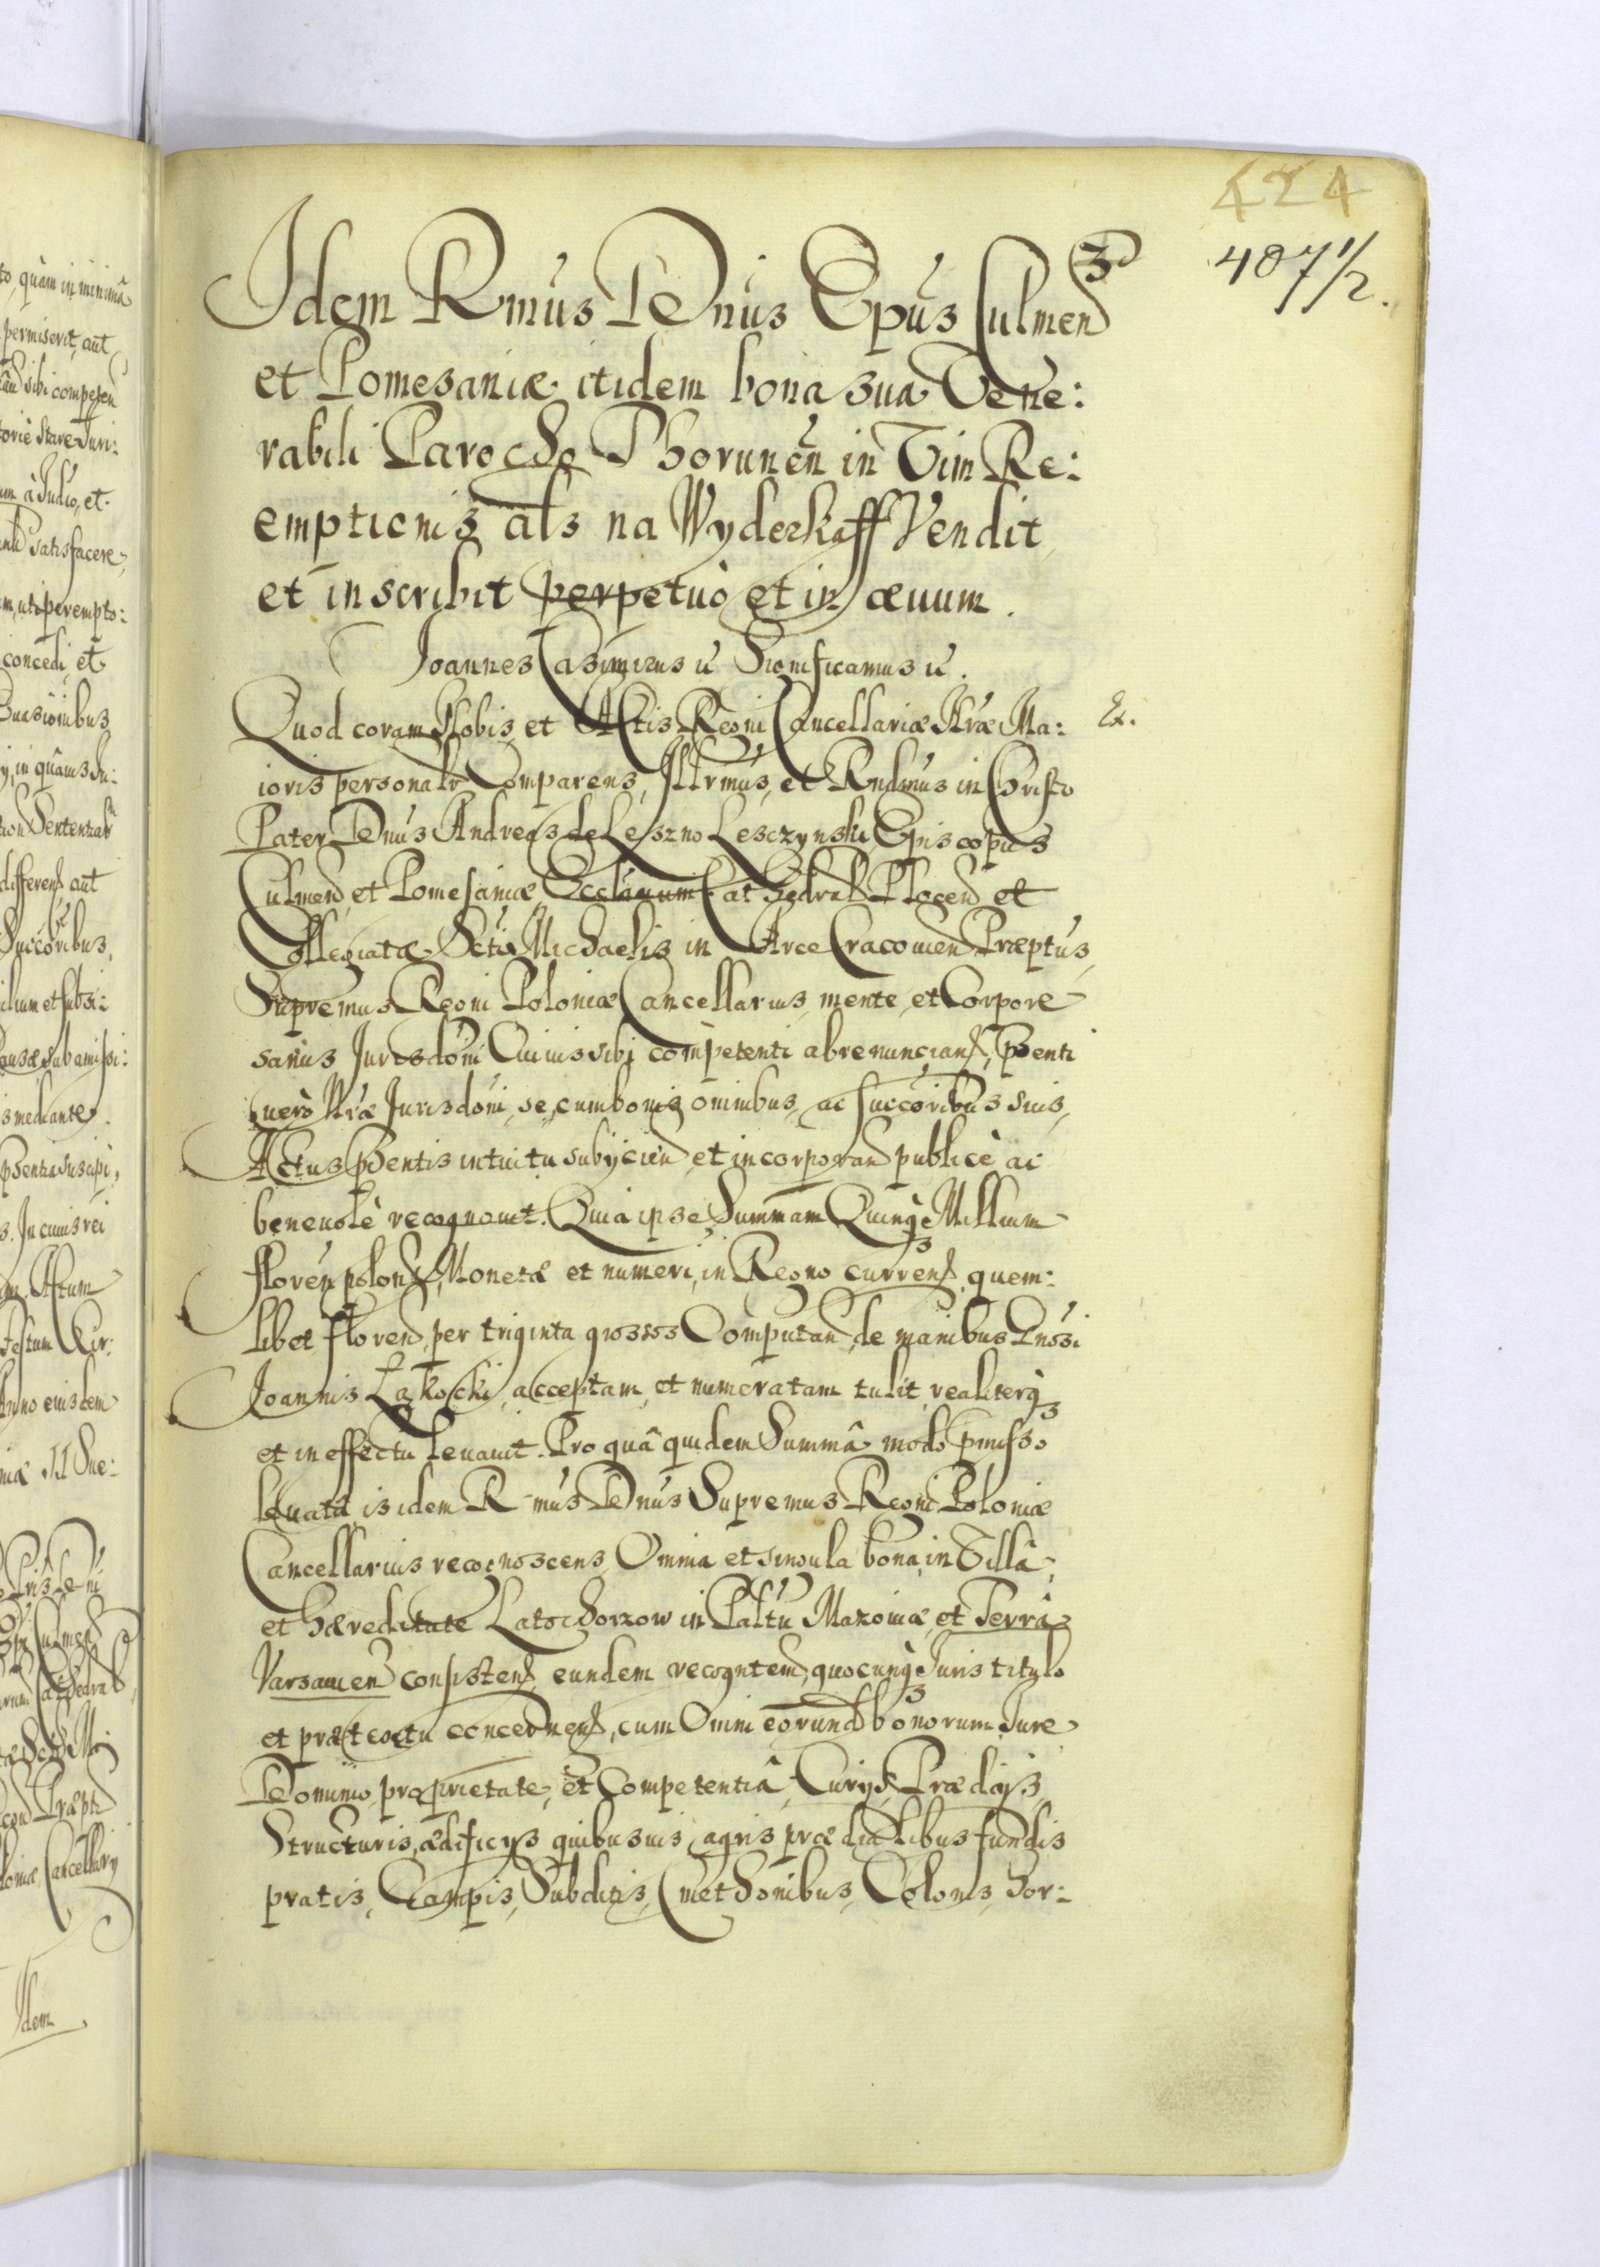 424
407 1/2.
Idem Rmus Dnus Epus Culmen
et Pomesaniæ itidem bona sua Vene:
rabili Parocho Thorunen in Vim Re:
emptionis als na Wyderkaff Vendit
et inscribit perpetuò et in æuum.
Joannes Casimirus &c Significamus &c.
Quod coram Nobis et Actis Regni Cancellariæ Nræ Ma: Ex.
ioris personalr Comparens, Illrmus, et Rndmus in Christo
Pater Dnus Andreas de Leszno Lesczynski Episcopus
Culmen, et Pomesaniæ, Ecclarum Cathedral Plocen et
Collegiatæ Scti Michaelis in Arce Cracouien Præptus,
Supremus Regni Poloniæ Cancellarius, mente, et Corpore
sanus Jurisdoni Cuiuis sibi competenti abrenuncians, Pnti
uerò Nræ Jurisdoni, se, cum bonis omnibus, ac succoribus suis,
Actus Pntis intuitu subijcien et incorporan publicè ac
beneuolè recognouit. Quia ipse Summam Quinq Millium
floren polon, Monetæ et numeri, in Regno currens, quem:
libet floren, per triginta grossos Computan, de manibus Gnosi
Joannis Łąkocki, acceptam, et numeratam tulit, realiterq
et in effectu leuauit. Pro quâ quidem Summâ modo pmisso
leuatâ isidem R-mus Dnus Supremus Regni Poloniæ
Cancellarius recognoscens, Omnia et singula bona, in Villâ,
et hæreditate Latochorzow in Paltu Mazouiæ, et Terrâ
Varsauien consisten, eundem recogntem, quocunq Juris titulo
et prætextu concernen, cum Omni eorund bonorum Jure
Dominio, proprietate, et Competentiâ, Curijs, Prædijs,
Structuris, ædificijs quibusuis, agris prædialibus fundis
pratis, Campis, Subditis, Cmethonibus, Colonis, hor: